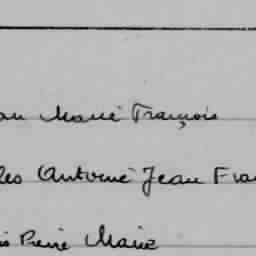 Marie François
Antoine Jean
Pierre Marie